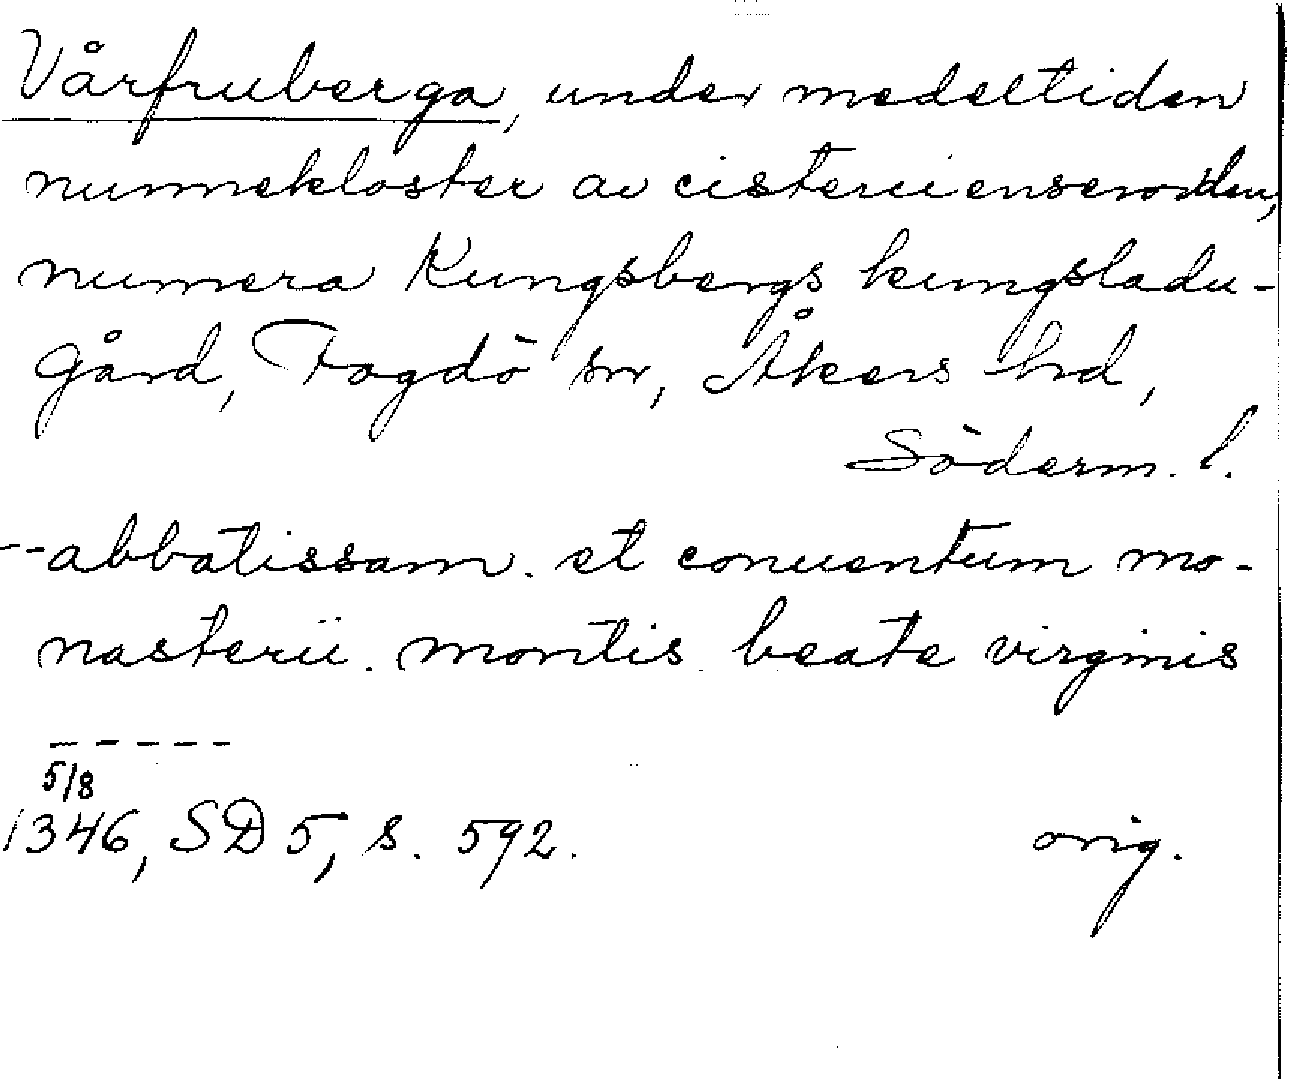 Vårfruberga, under medeltiden
nunnekloster av cistercienserorden,
numera Kungsbergs kungsladu-
gård, Fogdö sn, Åkers hd,
Söderm. l.
--abbatissam. et conuentum mo-
nasterii. montis. beate virginis
-----
5/8
1346, SD 5, s. 592. orig.